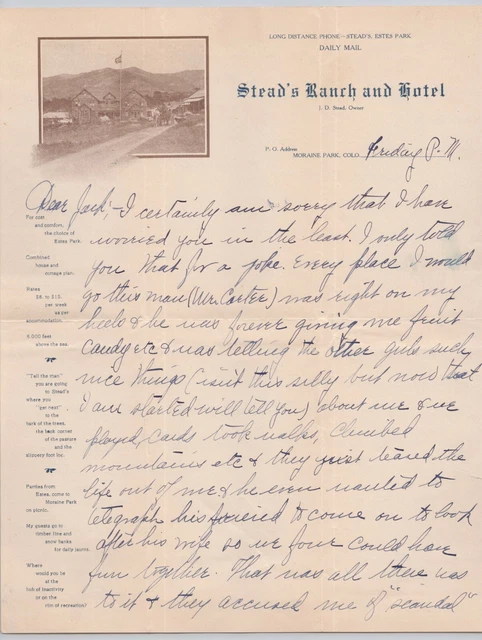 LONG DISTANCE PHONE - STEAD'S, ESTES PARK
DAILY MAIL
Stead's Ranch and Hotel
J. D. Stead, Owner
P. O. Address
MORAINE PARK, COLO. Friday P. M.
Dear Jack:- I certainly am sorry that I have
worried you in the least. I only told
you that for a joke. Every place I would
go this man (Mr. Carter) was right on my
heels & he was forever giving me fruit
candy etc & was telling the other girls such
nice things (isn't this silly but now that
I am started will tell you) about me & we
played cards took walks, climbed
mountains etc & they just teased the
life out of me & he even wanted to
telegraph his friend to come on to look
after his wife so we four could have
fun together. That was all there was
to it & they accused me of "scandal"
For cost
and comfort,
the choice of
Estes Park.
Combined
house and
cottage plan.
Rates
$8. to $15.
per week
as per
accommodation.
8,000 feet
above the sea.
"Tell the man"
you are going
to Stead's
where you
"get next"
to the
bark of the trees,
the back corner
of the pasture
and the
slippery foot loc.
Parties from
Estes, come to
Moraine Park
on picnic.
My guests go to
timber line and
snow banks
for daily jaunts.
Where
would you be
at the
hub of inactivity
or on the
rim of recreation?